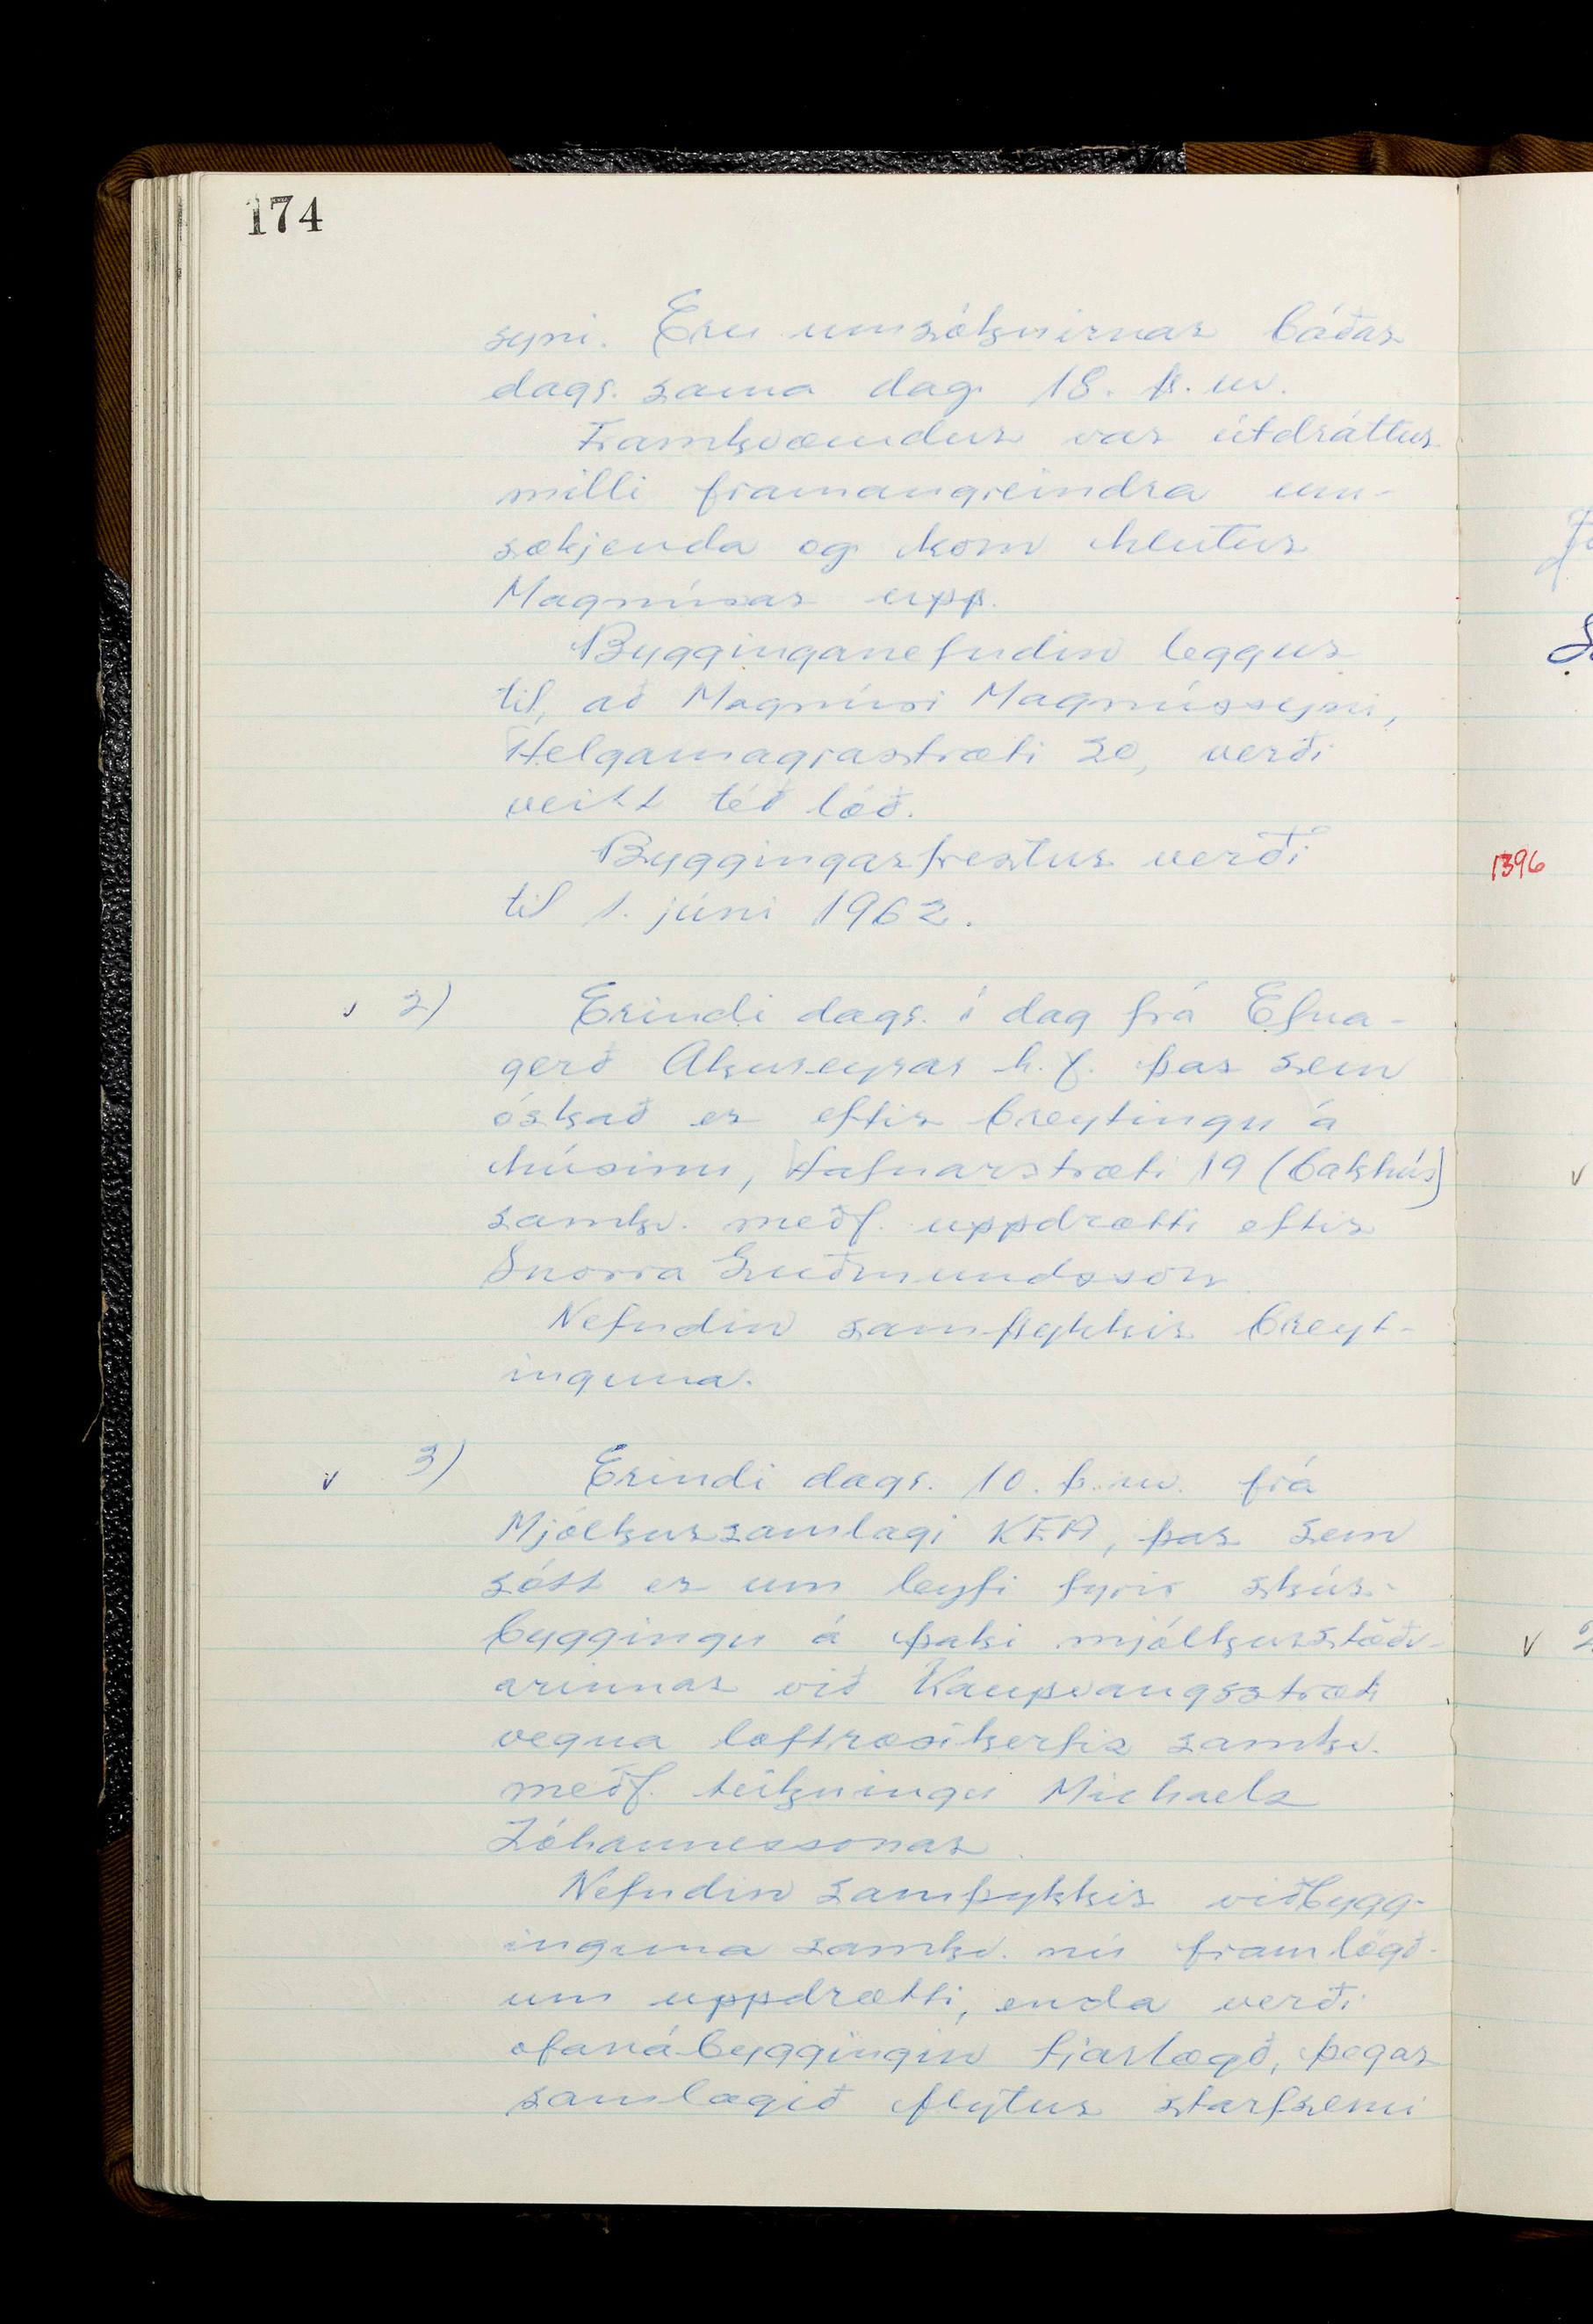 174
syni. Eru umsóknirnar báðar
dags. sama dag 18. þ.m.
Framkvæmdur var útdráttur
milli framangreindra um-
sækjenda og kom hlutur
Magnúsar upp.
Bygginganefndin leggur
til, að Magnúsi Magnússyni,
Helgamagrastræti 20, verði
veitt téð lóð.
Byggingarfrestur verði
til 1. júní 1962.
v 2) Erindi dags. í dag frá Efna-
gerð Akureyrar h.f. þar sem
óskað er eftir breytingu á
húsinu, Hafnarstræti 19 (bakhús)
samkv. meðf. uppdrætti eftir
Snorra Guðmundsson.
Nefndin samþykkir breyt-
inguna.
v 3) Erindi dags. 10. þ.m. frá
Mjólkursamlagi KEA, þar sem
sótt er um leyfi fyrir skúr-
byggingu á þaki mjólkurstöðv-
arinnar við Kaupvangsstræti
vegna loftræsikerfis samkv.
meðf. teikningu Michaels
Jóhannessonar.
Nefndin samþykkir viðbygg-
inguna samkv. nú framlögð-
um uppdrætti, enda verði
ofanábyggingin fjarlægð, þegar
samlagið flytur starfsemi
1396
v
v